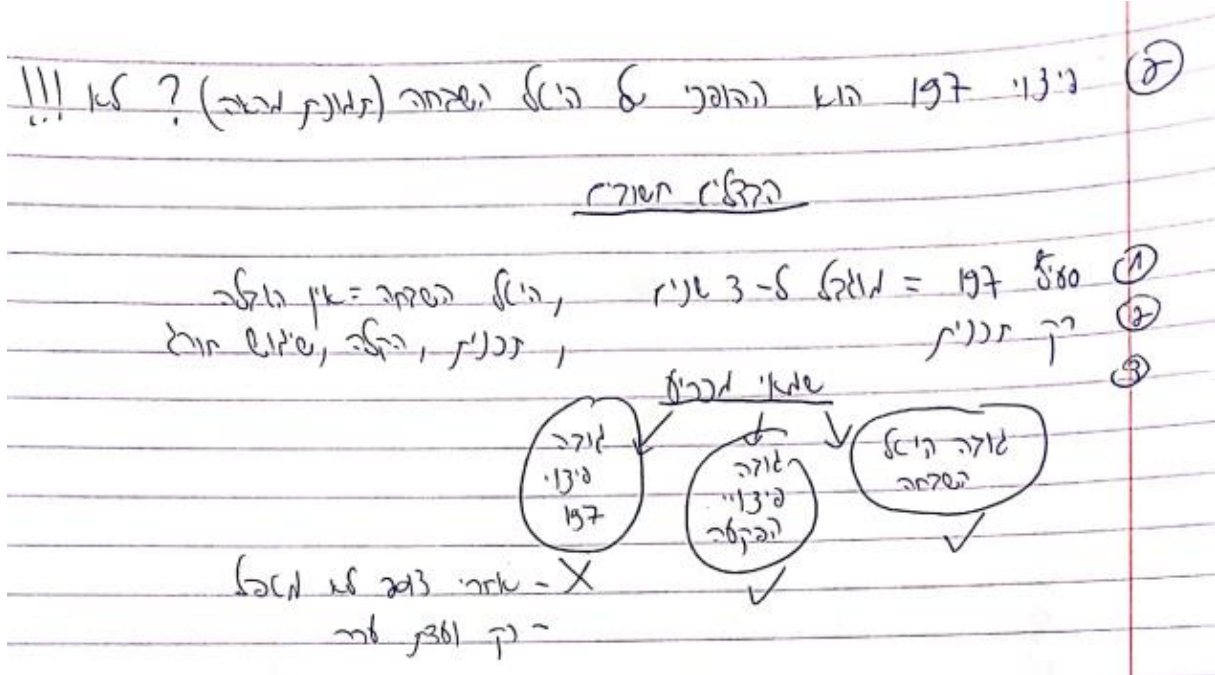 ② פיצוי 197 הוא ההופכי של היטל השבחה (תמונת מראה)? לא !!!
הבדלים חשובים
① סעיף 197 = מוגבל ל-3 שנים, היטל השבחה = אין הגבלה
② רק תכנית, תכנית, הקלה, שימוש חורג
③
שמאי מכריע
גובה היטל
השבחה
✓
גובה
פיצויי
הפקעה
✓
גובה
פיצוי
197
X - אחרי 2013 לא מטפל
- רק ועדת ערר